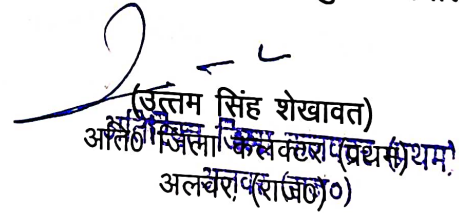 (उत्तम सिंह शेखावत)
अति० जिला कलक्टर (प्रथम)
अलवर (राज०)